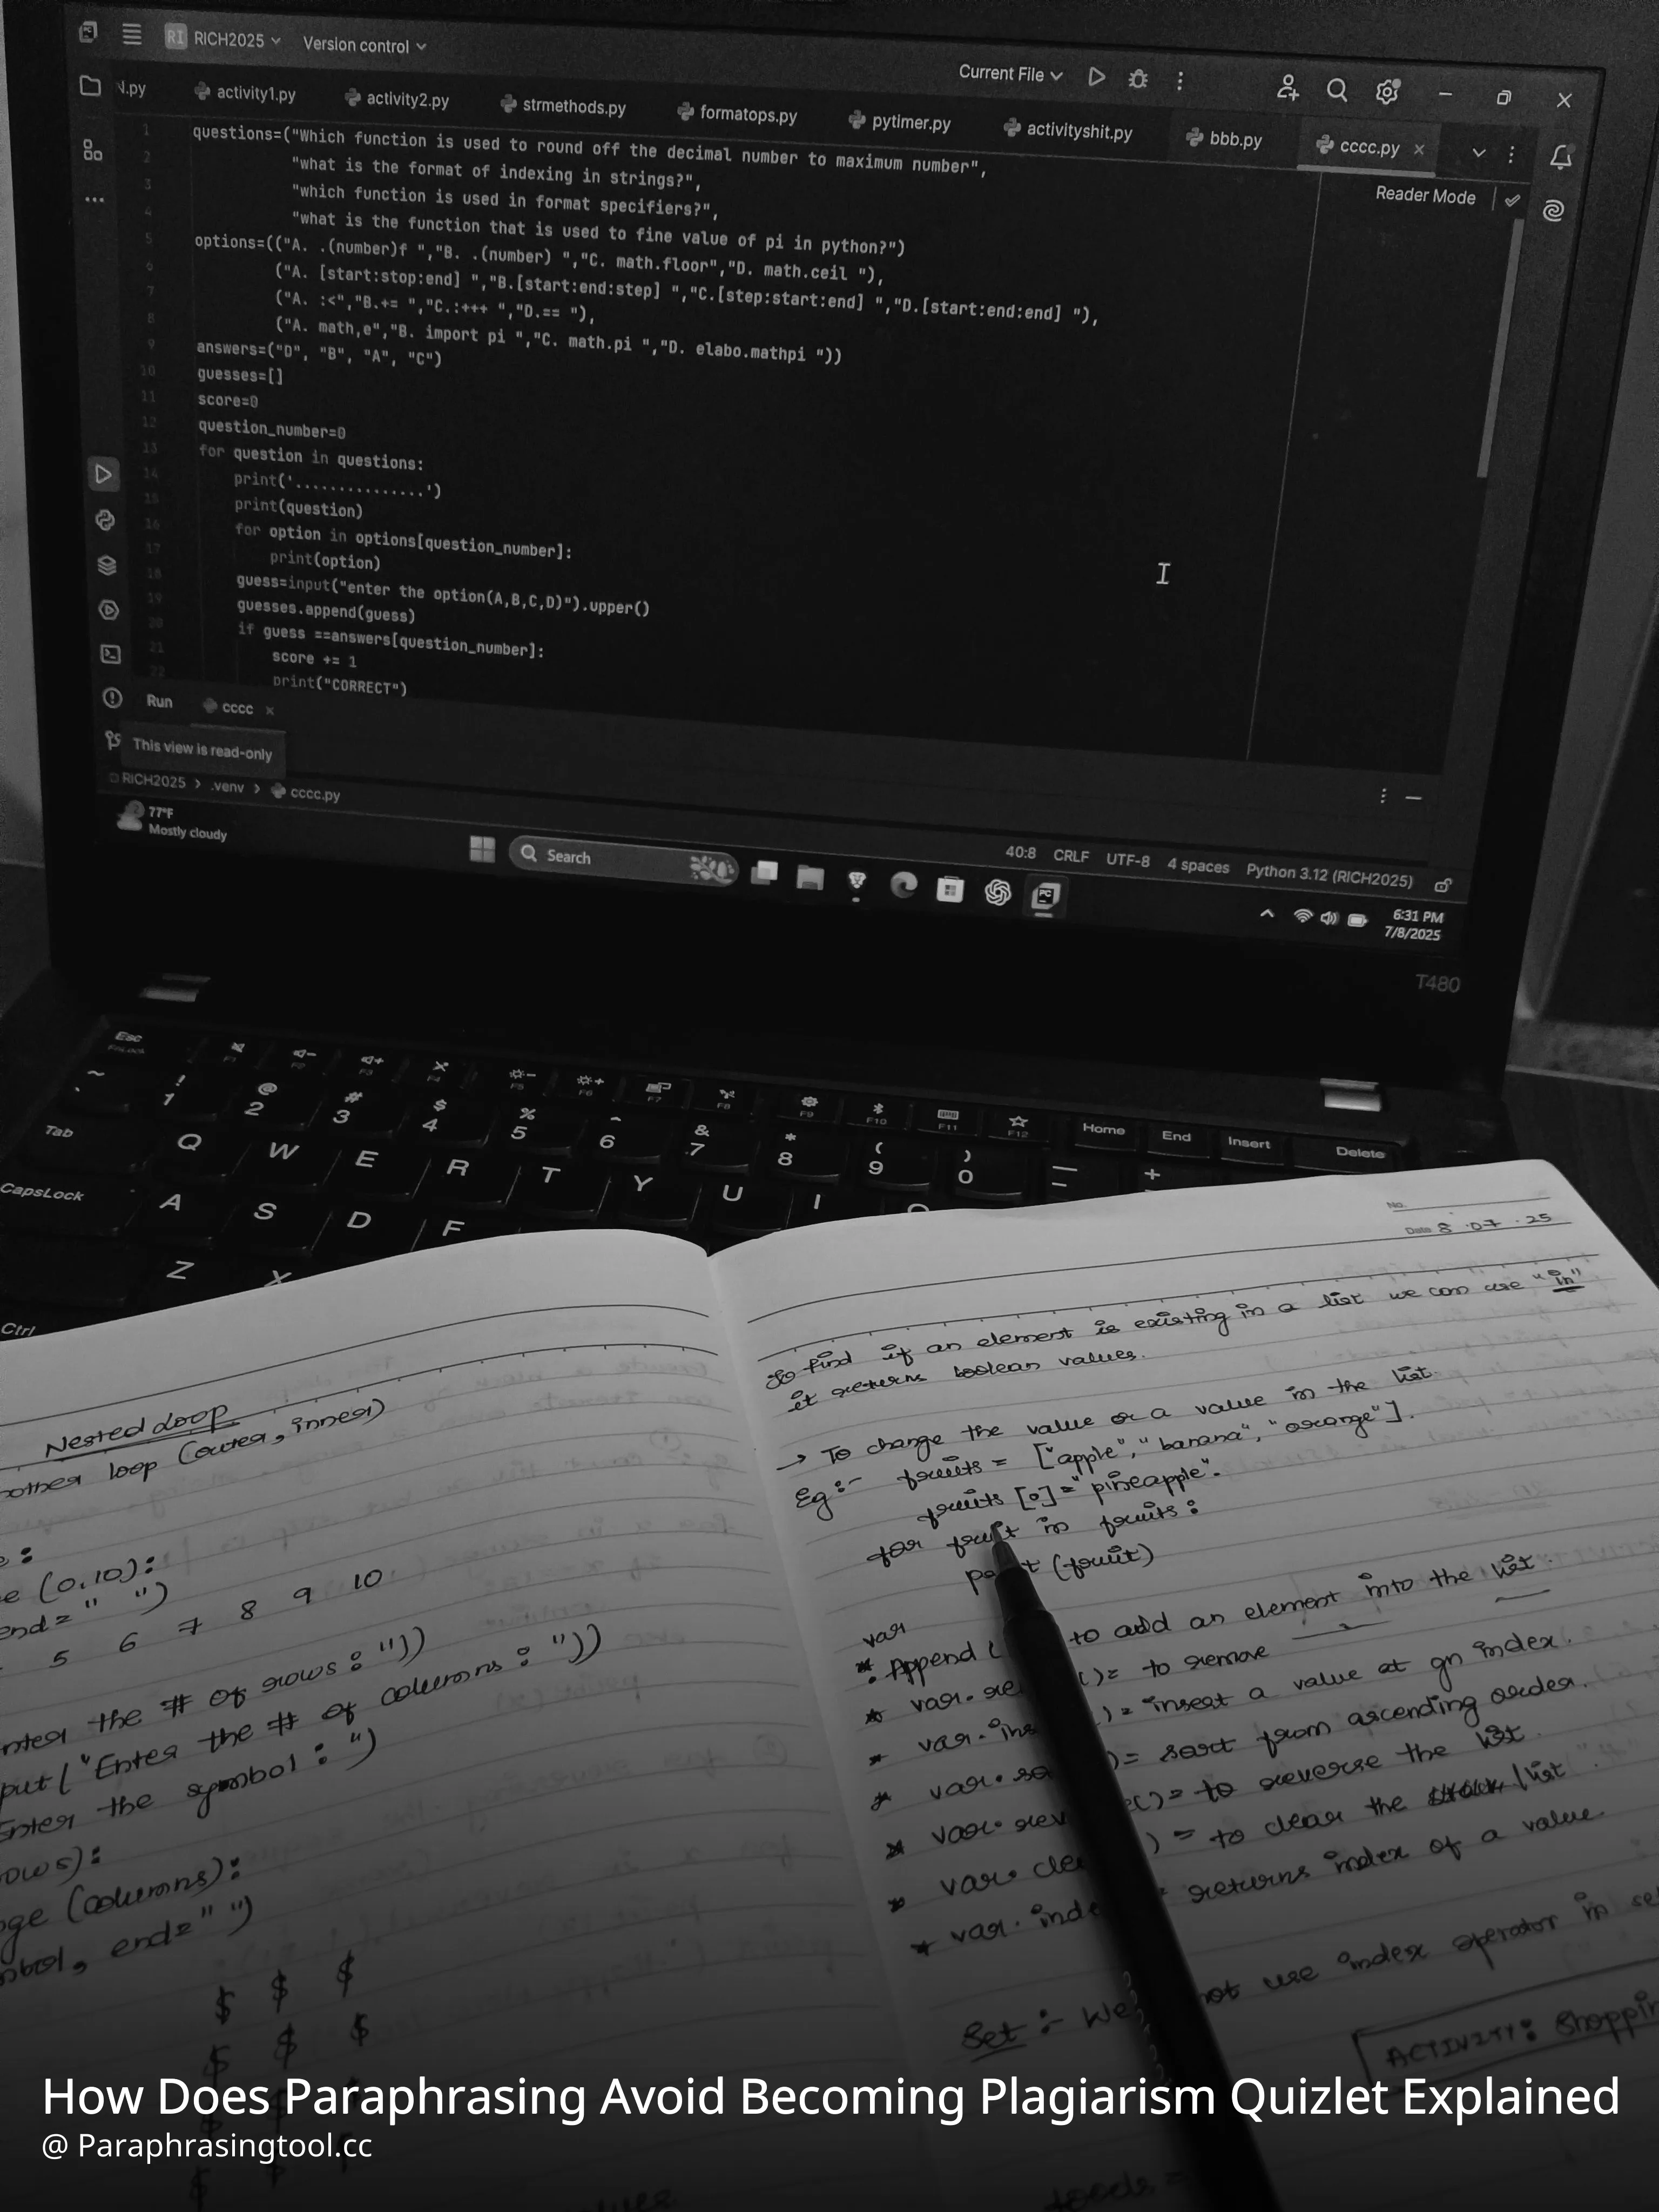 RI RICH2025 Version control
Current File
activity1.py activity2.py strmethods.py formatops.py pytimer.py activityshit.py bbb.py cccc.py
Reader Mode
1 questions=("Which function is used to round off the decimal number to maximum number",
2 "what is the format of indexing in strings?",
3 "which function is used in format specifiers?",
4 "what is the function that is used to fine value of pi in python?")
5 options=(("A. .(number)f ","B. .(number) ","C. math.floor","D. math.ceil "),
6 ("A. [start:stop:end] ","B.[start:end:step] ","C.[step:start:end] ","D.[start:end:end] "),
7 ("A. :<","B.+= ","C.:+++ ","D.== "),
8 ("A. math,e","B. import pi ","C. math.pi ","D. elabo.mathpi "))
9 answers=("D", "B", "A", "C")
10 guesses=[]
11 score=0
12 question_number=0
13 for question in questions:
14 print('...............')
15 print(question)
16 for option in options[question_number]:
17 print(option)
18 guess=input("enter the option(A,B,C,D)").upper()
19 guesses.append(guess)
20 if guess ==answers[question_number]:
21 score += 1
22 print("CORRECT")
Run cccc
This view is read-only
RICH2025 > .venv > cccc.py
40:8 CRLF UTF-8 4 spaces Python 3.12 (RICH2025)
77°F
Mostly cloudy
Search
6:31 PM
7/8/2025
T480
Esc F1 F2 F3 F4 F5 F6 F7 F8 F9 F10 F11 F12 Home End Insert Delete
~ ! 1 @ 2 # 3 $ 4 % 5 6 & 7 * 8 ( 9 ) 0 +
Tab Q W E R T Y U I
CapsLock A S D F
Z X
Ctrl
Nested Loop
loop (outer, inner)
(0,10):
end=" ")
5 6 7 8 9 10
the # of rows : "))
("Enter the # of columns : "))
Enter the symbol : ")
(columns):
end=" ")
$ $ $
$ $ $
No.
Date 8 .07 .25
To find if an element is existing in a list we can use "in"
it returns boolean values.
→ To change the value or a value in the list.
Eg:- fruits = ["apple", "banana", "orange"].
fruits [0] = "pineapple".
for fruit in fruits :
(fruit)
var
* Append ( to add an element into the list.
* var. ()= to remove
* var. )= insert a value at gn index.
* var. )= sort from ascending order.
* var. ()= to reverse the list.
* var. ) = to clear the /list.
* var. returns index of a value.
Set :- We not use index operator in
ACTIVITY:
How Does Paraphrasing Avoid Becoming Plagiarism Quizlet Explained
@ Paraphrasingtool.cc